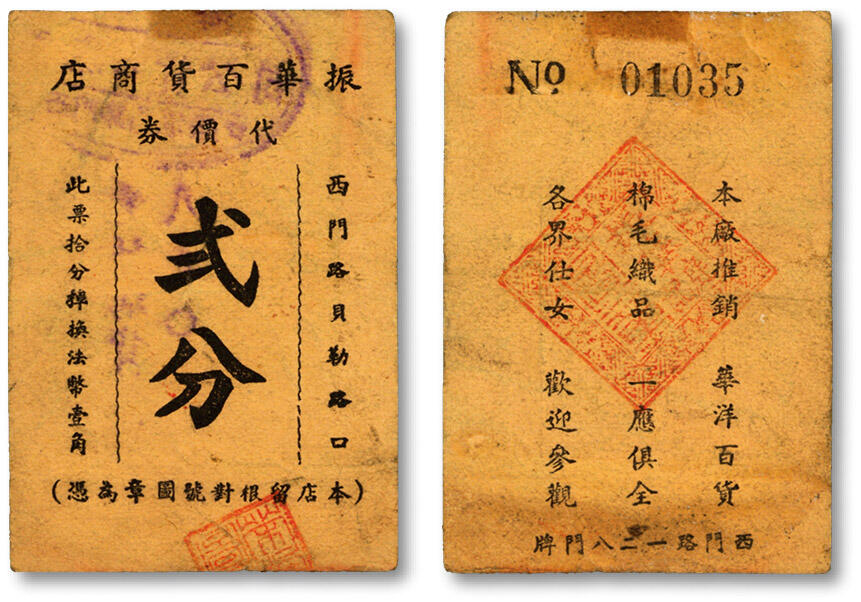 振華百貨商店
代價券
西門路貝勒路口
弍分
此票拾分掉換法幣壹角
(本店留根對號圖章為憑)
No 01035
本廠推銷 華洋百貨
棉毛織品 一應俱全
各界仕女 歡迎參觀
西門路一二八門牌